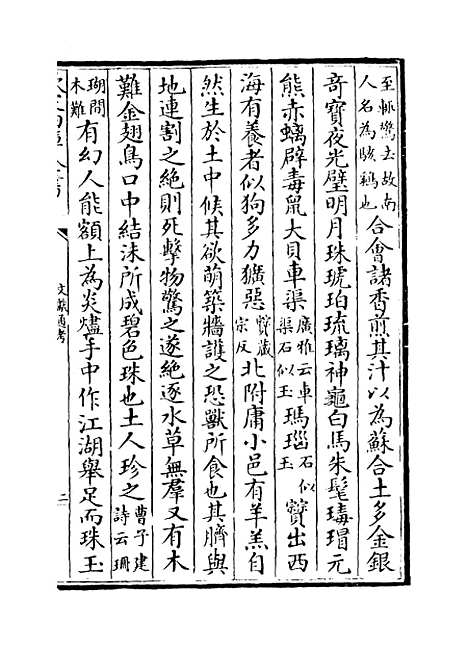 至輒驚去故南
人名為駭雞也
合會諸香煎其汁以為蘇合土多金銀
竒寳夜光璧明月珠琥珀琉璃神龜白馬朱髦瑇瑁元
熊赤螭辟毒鼠大貝車渠
廣雅云車
渠石似玉
瑪瑙
石似
玉
寳出西
海有養者似狗多力獷惡
寳藏
宗反
北附庸小邑有羊羔自
然生於土中候其欲萌築牆護之恐獸所食也其臍與
地連割之絶則死擊物驚之遂絶逐水草無羣又有木
難金翅鳥口中結沫所成碧色珠也土人珍之
曹子建
詩云珊
瑚間
木難
有幻人能額上為炎燼手中作江湖舉足而珠玉
文獻通考
二